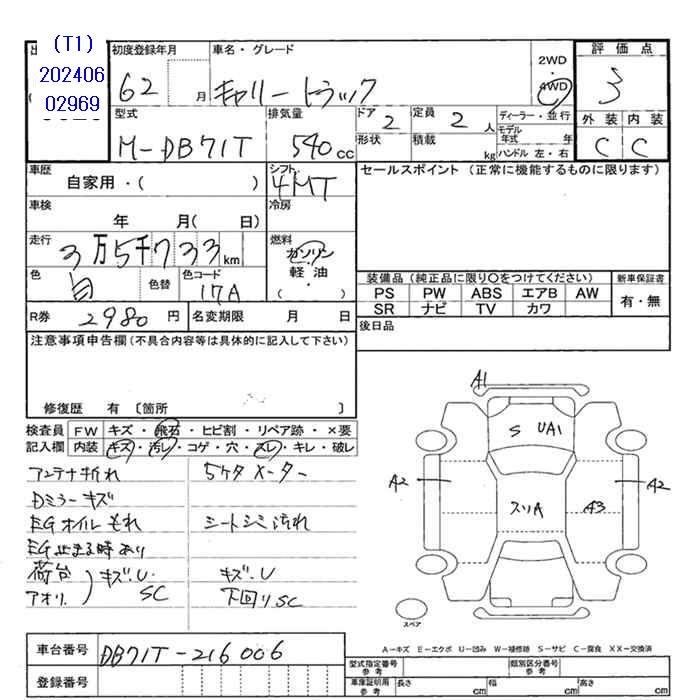 (T1)
202406
02969
初度登録年月 62 月
車名・グレード キャリートラック
2WD
・
4WD
評価点 3
外装 内装
C C
型式 M-DB71T
排気量 540cc
ドア 2
形状
定員 2 人
積載 kg
ディーラー・並行
モデル年式 年
ハンドル 左・右
車歴 自家用・( )
シフト 4MT
セールスポイント (正常に機能するものに限ります)
車検 年 月( 日)
冷房
走行 3万5千733km
燃料 ガソリン・軽油・( )
色 白 色替
色コード 17A
装備品(純正品に限り〇をつけてください)
新車保証書
PS PW ABS エアB AW
有・無
SR ナビ TV カワ
R券 2980 円
名変期限 月 日
後日品
注意事項申告欄(不具合内容等は具体的に記入して下さい)
修復歴 有 〔箇所 〕
検査員記入欄
FW キズ・飛石・ヒビ割・リペア跡・×要
内装 キズ・汚レ・コゲ・穴・スレ・キレ・破レ
アンテナ折れ 5ケタメーター
Dミラーキズ
EGオイルもれ シートシミ汚れ
EG止まる時あり
荷台 キズ.U. キズ.U
アオリ. SC 下回りSC
A1
S UA1
A2 スリA A3 A2
スペア
A-キズ E-エクボ U-凹み W-補修跡 S-サビ C-腐食 XX-交換済
車台番号 DB71T-216006
登録番号
型式指定番号 参考
類別区分番号 参考
車庫証明用 参考 長さ cm 幅 cm 高さ cm